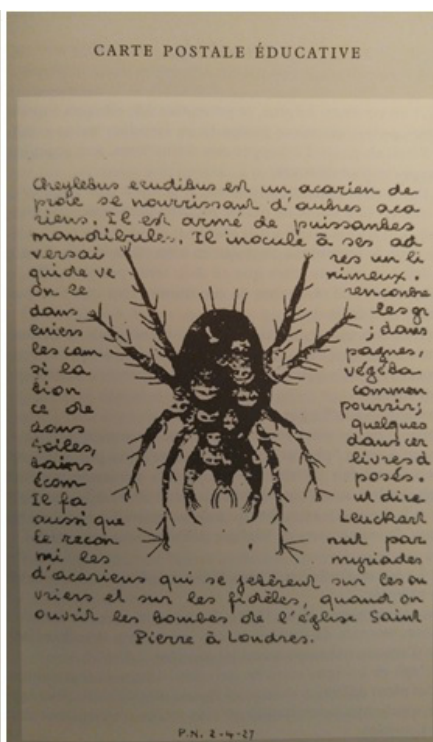 CARTE POSTALE ÉDUCATIVE
Cheyletus eruditus est un acarien de
proie se nourrissant d'autres aca
riens. Il est armé de puissantes
mandibules. Il inocule à ses ad
versai res un li
quide ve nimeux.
On le rencontre
dans les gr
eniers ; dans
les cam pagnes,
si la végéta
tion commen
ce de pourrir;
dans quelques
toiles, dans cer
tains livres d
écom posés.
Il fa ut dire
aussi que Leuckart
le recon nut par
mi les myriades
d'acariens qui se jetèrent sur les ou
vriers et sur les fidèles, quand on
ouvrit les tombes de l'église Saint
Pierre à Londres.
P.N. 2-4-27